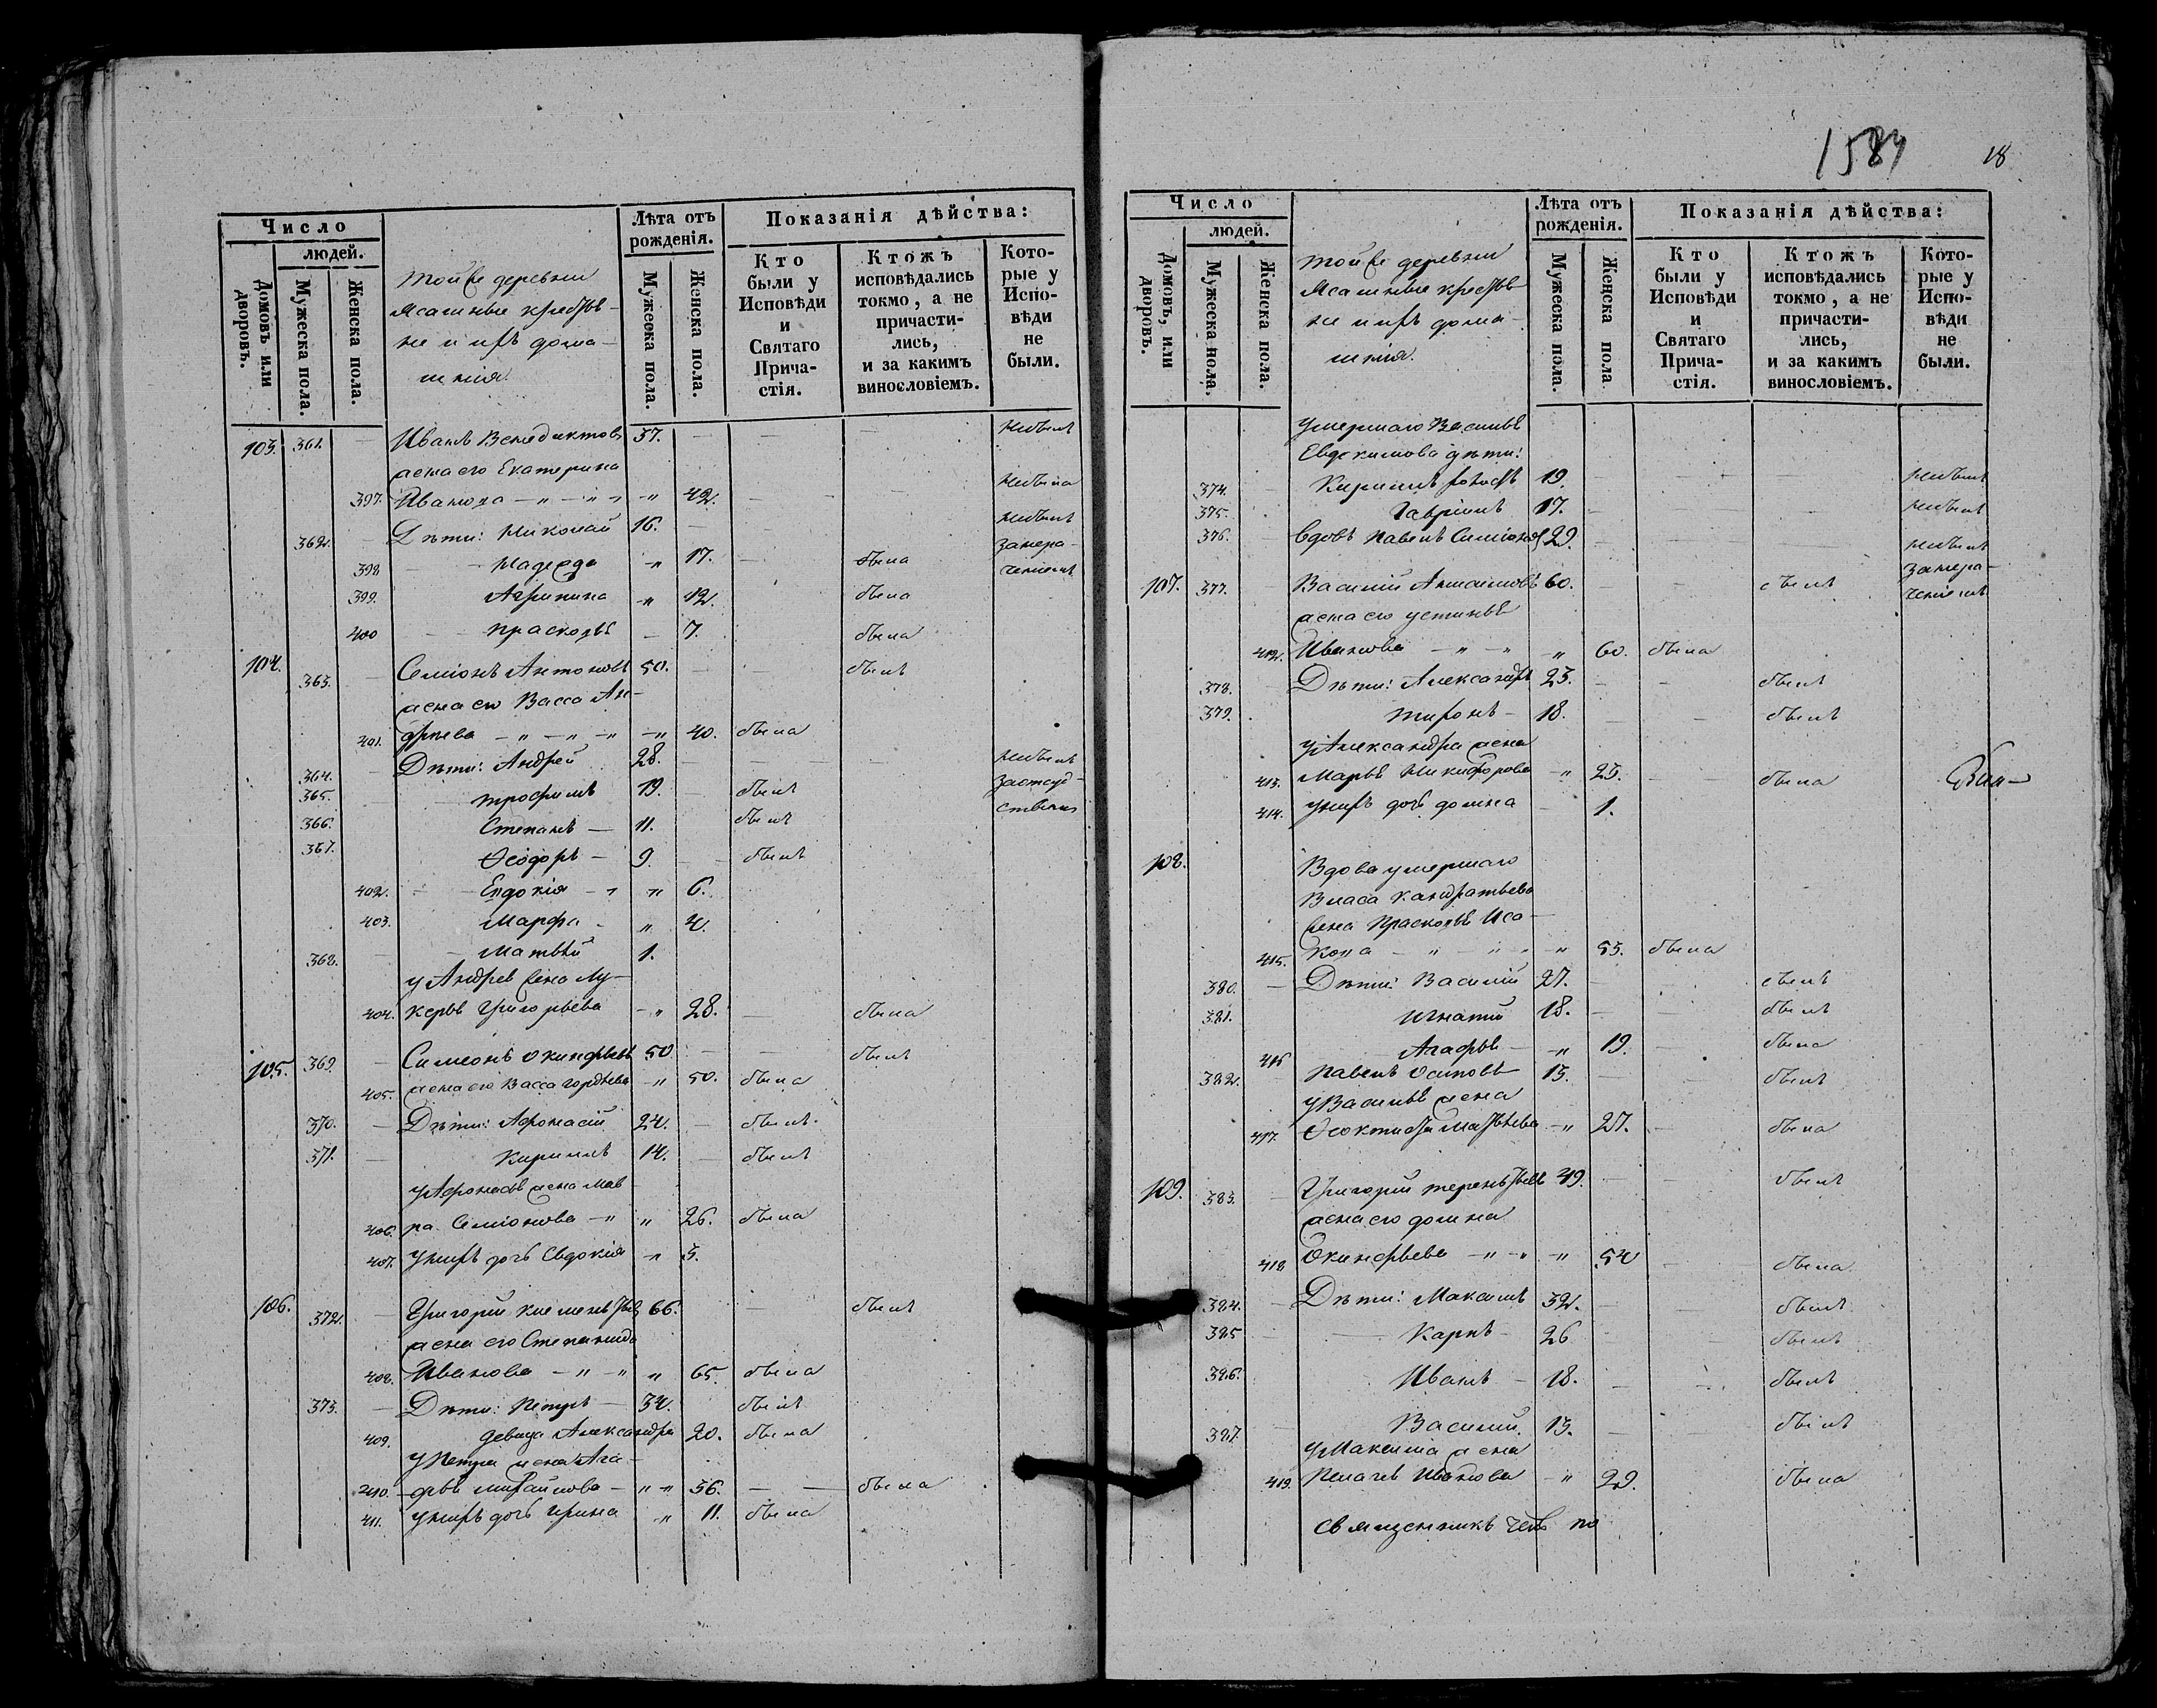 Число
людей.
Домовъ или дворовъ.
Мужеска пола.
Женска пола.
Той же деревни
Ясашные крестья-
не и ихъ дома-
шнія.
Лѣта отъ рожденія.
Мужеска пола.
Женска пола.
Показанія дѣйства:
Кто были у Исповѣди и Святаго Прича-стія.
Ктожъ исповѣдались токмо, а не причасти-лись, и за какимъ винословіемъ.
Кото-рые у Испо-вѣди не были.
103. 361. — Иванъ Венедиктовъ 37. — — — небылъ
жена его Екатерина
397. Иванова — „ — „ — „ 42. — — небыла
362. — Дѣти: Николай 16. — небылъ
398 — Надежда — „ 17. — была
399. Агрипина — „ 12. была
400 — Прасковья — 7. была
104. 363. — Семіонъ Антоновъ 50. — — былъ
жена его Васса Ан-
401. дреева — „ — „ — „ 40. была
364. — Дѣти: Андрей 28. — — — небылъ
365. — Трофимъ 19. — былъ
366. Степанъ — 11. былъ
367. Ѳеодоръ — 9. — былъ
402. — Евдокія — „ 6.
403. Марфа — „ 4.
368. — Матвѣй 1.
у Андрея жена Лу-
404. керья Григорьева — „ 28. — была
105. 369. — Симеонъ Окинфьевъ 50 — — былъ
405. жена его Васса Гордѣева — „ 50. была
370. — Дѣти: Афонасій 24. — былъ.
371. — Кирилъ 14. — былъ
у Афонасья жена Мав-
406. ра Семіонова — „ „ 26. была
407. у нихъ дочь Евдокія — „ 3.
106. 372. — Григорій Клементьевъ 66. былъ
жена его Степанида
408. Иванова — „ — „ „ 65. была
373. — Дѣти: Петръ — 34. былъ
409. девица Александра 20. была
у Петра жена Ага-
410. — фья Михайлова — „ „ 36. — — была
411. у нихъ дочь Ирина „ 11. была
1584
18
Число
людей.
Домовъ, или дворовъ.
Мужеска пола.
Женска пола.
Той же деревни
Ясашные крестья-
не и ихъ дома-
шнія.
Лѣта отъ рожденія.
Мужеска пола.
Женска пола
Показанія дѣйства:
Кто были у Исповѣди и Святаго Прича-стія.
Ктожъ исповѣдались токмо, а не причасти-лись, и за какимъ винословіемъ.
Кото-рые у Испо-вѣди не были.
Умершаго Василья
Евдокимова дѣти:
374. — Кирилъ холостъ 19. — — — небылъ
375. Гавріилъ 17. — небылъ
376. — Вдовъ Павелъ Симіоновъ 29. — — — небылъ
107. 377. Василій 60. — — былъ
жена его Устинья
412. Иванова — „ — „ „ 60. была
378. — Дѣти: Александръ 23. — — былъ
379. Тихонъ — 18. — — былъ
у Александра жена
413. Марья Никифорова — „ 23. — была
414. у нихъ дочь Домна — 1.
108. Вдова умершаго
Власа Кандратьева
жена Прасковья Иса-
415. кова — „ — „ — „ 53. была
380. — Дѣти: Василій 27. — былъ
381. Игнатій 18. — — былъ
416 — Агафья — „ 19. — была
382. — Павелъ Осиповъ 13. — — былъ
у Василья жена
417. Ѳеоктиста Матвѣева — „ 27. — была
109. 383. — Григорій Терентьевъ 49. — — былъ
жена его Домна
418 Окинфьева — „ — „ — „ 54 — была
384. — Дѣти: Максимъ 32. — — былъ
385 — Карпъ — 26 — — былъ
386. Иванъ — 18. — — былъ
387. — Василій 13. — — былъ
у Максима жена
419. Пелагея Иванова — „ 29. была
Священникъ